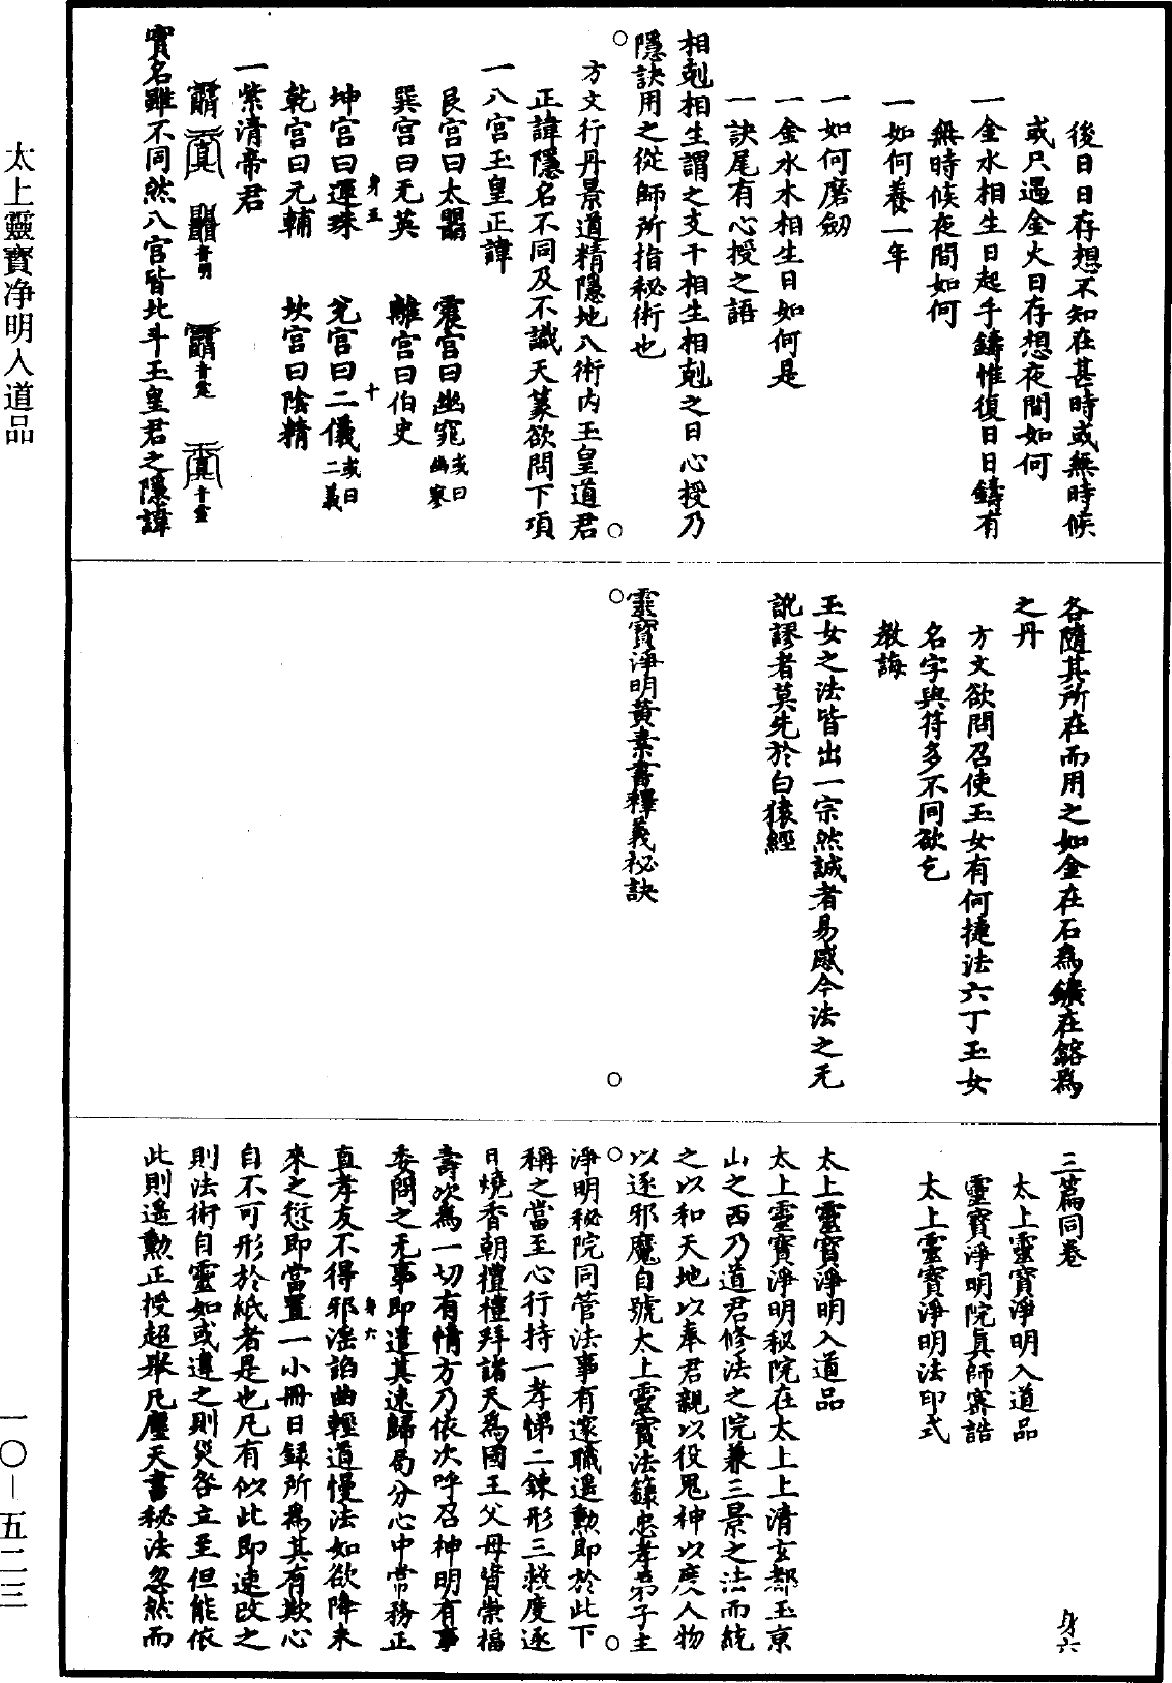 後日日存想不知在甚時或無時候
或只遇金火日存想夜間如何
一金水相生日起手鑄惟復日日鑄有
無時候夜間如何
一如何養一年
一如何磨劒
一金水木相生日如何是
一訣尾有心授之語
相剋相生謂之支干相生相剋之日心授乃
隱訣用之從師所指秘術也
方文行丹景道精隱地八術內玉皇道君
正諱隱名不同及不識天篆欲問下項
一八宮玉皇正諱
艮宮曰太㗊 震宮曰幽窕或曰幽寥
巽宮曰无英 離宮曰伯史
身五 十
坤宮曰運珠 兌宮曰二儀或曰二義
乾宮曰元輔 坎宮曰陰精
一紫清帝君
實名雖不同然八宮皆北斗玉皇君之隱諱
各隨其所在而用之如金在石為鑛在鎔為
之丹
方文欲問召使玉女有何捷法六丁玉女
名字與符多不同欲乞
教誨
玉女之法皆出一宗然誠者易感今法之无
訛謬者莫先於白猿經
靈寶淨明黃素書釋義秘訣
三篇同卷 身六
太上靈寶淨明入道品
靈寶淨明院真師密誥
太上靈寶淨明法印式
太上靈寶淨明入道品
太上靈寶淨明秘院在太上上清玄都玉京
山之西乃道君修法之院兼三景之法而統
之以和天地以奉君親以役鬼神以度人物
以逐邪魔自號太上靈寶法籙忠孝弟子主
淨明秘院同管法事有遷職遙勳即於此下
稱之當至心行持一孝悌二鍊形三救度逐
日燒香朝禮禮拜諸天為國王父母資崇福
壽次為一切有情方乃依次呼召神明有事
委問之无事即遣其速歸局分心中常務正
身六
直孝友不得邪淫諂曲輕道慢法如欲降未
來之愆即當置一小冊日錄所為其有欺心
自不可形於紙者是也凡有似此即速改之
則法術自靈如或違之則災咎立至但能依
此則遙勳正授超舉凡塵天書秘法忽然而
太上靈寶净明入道品
一〇—五二三